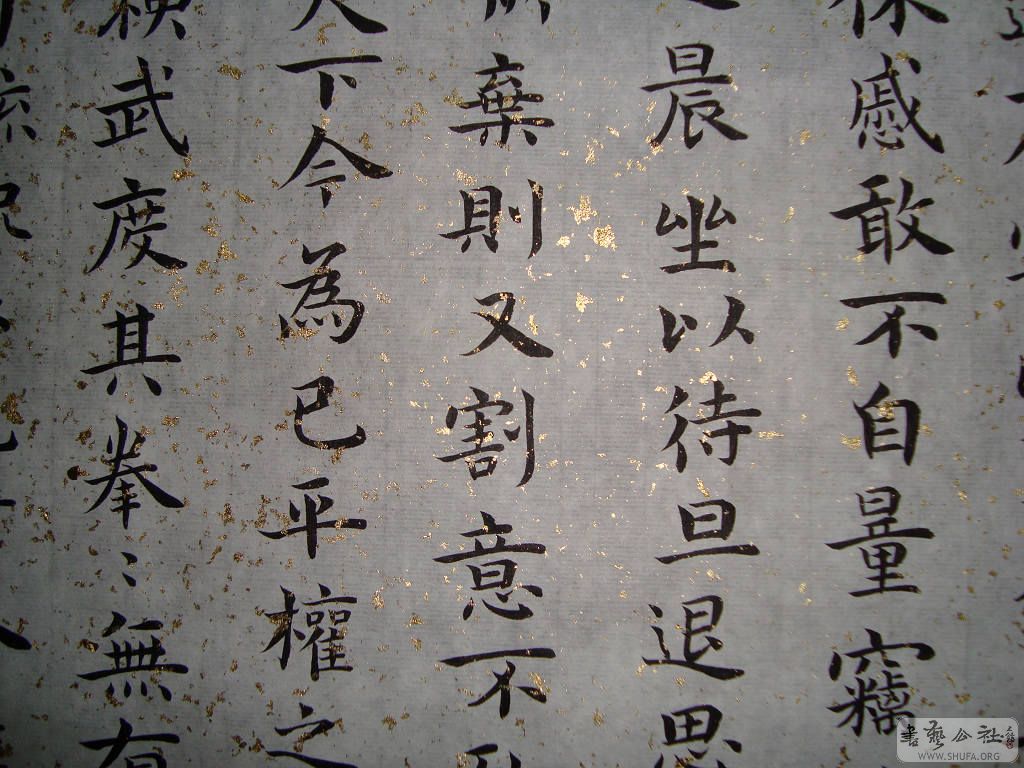 休慼敢不自量竊
晨坐以待旦退思
棄則又割意不
天下今為已平權之
武度其拳〻無有
疏況
書藝公社
WWW.SHUFA.ORG